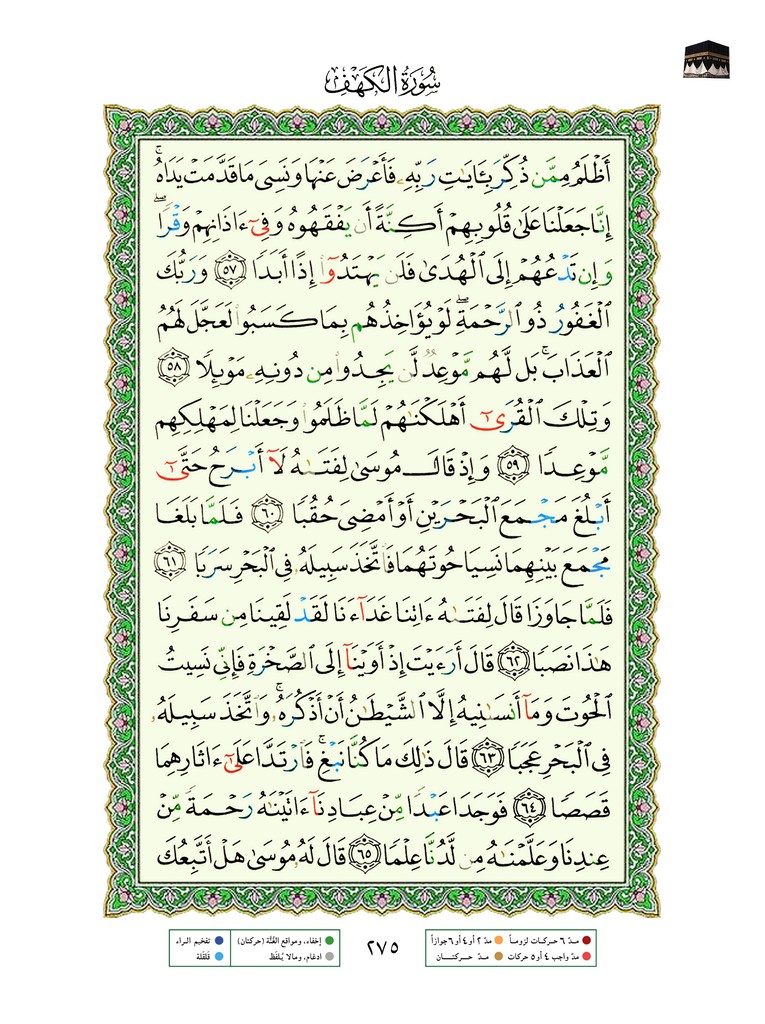 سُورَةُ الكَهْفِ
أَظْلَمُ مِمَّن ذُكِّرَ بِـَٔايَٰتِ رَبِّهِۦ فَأَعْرَضَ عَنْهَا وَنَسِىَ مَا قَدَّمَتْ يَدَاهُ ۚ
إِنَّا جَعَلْنَا عَلَىٰ قُلُوبِهِمْ أَكِنَّةً أَن يَفْقَهُوهُ وَفِىٓ ءَاذَانِهِمْ وَقْرًا ۖ
وَإِن تَدْعُهُمْ إِلَى ٱلْهُدَىٰ فَلَن يَهْتَدُوٓا۟ إِذًا أَبَدًا ۝٥٧ وَرَبُّكَ
ٱلْغَفُورُ ذُو ٱلرَّحْمَةِ ۖ لَوْ يُؤَاخِذُهُم بِمَا كَسَبُوا۟ لَعَجَّلَ لَهُمُ
ٱلْعَذَابَ ۚ بَل لَّهُم مَّوْعِدٌ لَّن يَجِدُوا۟ مِن دُونِهِۦ مَوْئِلًا ۝٥٨
وَتِلْكَ ٱلْقُرَىٰٓ أَهْلَكْنَٰهُمْ لَمَّا ظَلَمُوا۟ وَجَعَلْنَا لِمَهْلِكِهِم
مَّوْعِدًا ۝٥٩ وَإِذْ قَالَ مُوسَىٰ لِفَتَىٰهُ لَآ أَبْرَحُ حَتَّىٰٓ
أَبْلُغَ مَجْمَعَ ٱلْبَحْرَيْنِ أَوْ أَمْضِىَ حُقُبًا ۝٦٠ فَلَمَّا بَلَغَا
مَجْمَعَ بَيْنِهِمَا نَسِيَا حُوتَهُمَا فَٱتَّخَذَ سَبِيلَهُۥ فِى ٱلْبَحْرِ سَرَبًا ۝٦١
فَلَمَّا جَاوَزَا قَالَ لِفَتَىٰهُ ءَاتِنَا غَدَآءَنَا لَقَدْ لَقِينَا مِن سَفَرِنَا
هَٰذَا نَصَبًا ۝٦٢ قَالَ أَرَءَيْتَ إِذْ أَوَيْنَآ إِلَى ٱلصَّخْرَةِ فَإِنِّى نَسِيتُ
ٱلْحُوتَ وَمَآ أَنسَىٰنِيهُ إِلَّا ٱلشَّيْطَٰنُ أَنْ أَذْكُرَهُۥ ۚ وَٱتَّخَذَ سَبِيلَهُۥ
فِى ٱلْبَحْرِ عَجَبًا ۝٦٣ قَالَ ذَٰلِكَ مَا كُنَّا نَبْغِ ۚ فَٱرْتَدَّا عَلَىٰٓ ءَاثَارِهِمَا
قَصَصًا ۝٦٤ فَوَجَدَا عَبْدًا مِّنْ عِبَادِنَآ ءَاتَيْنَٰهُ رَحْمَةً مِّنْ
عِندِنَا وَعَلَّمْنَٰهُ مِن لَّدُنَّا عِلْمًا ۝٦٥ قَالَ لَهُۥ مُوسَىٰ هَلْ أَتَّبِعُكَ
مدّ ٦ حركات لزوماً
مدّ ٢ أو ٤ أو ٦ جوازاً
مدّ واجب ٤ أو ٥ حركات
مدّ حركتان
٢٧٥
إخفاء، ومواقع الغُنَّة (حركتان)
تفخيم الراء
ادغام، ومالا يُلفَظ
قلقلة